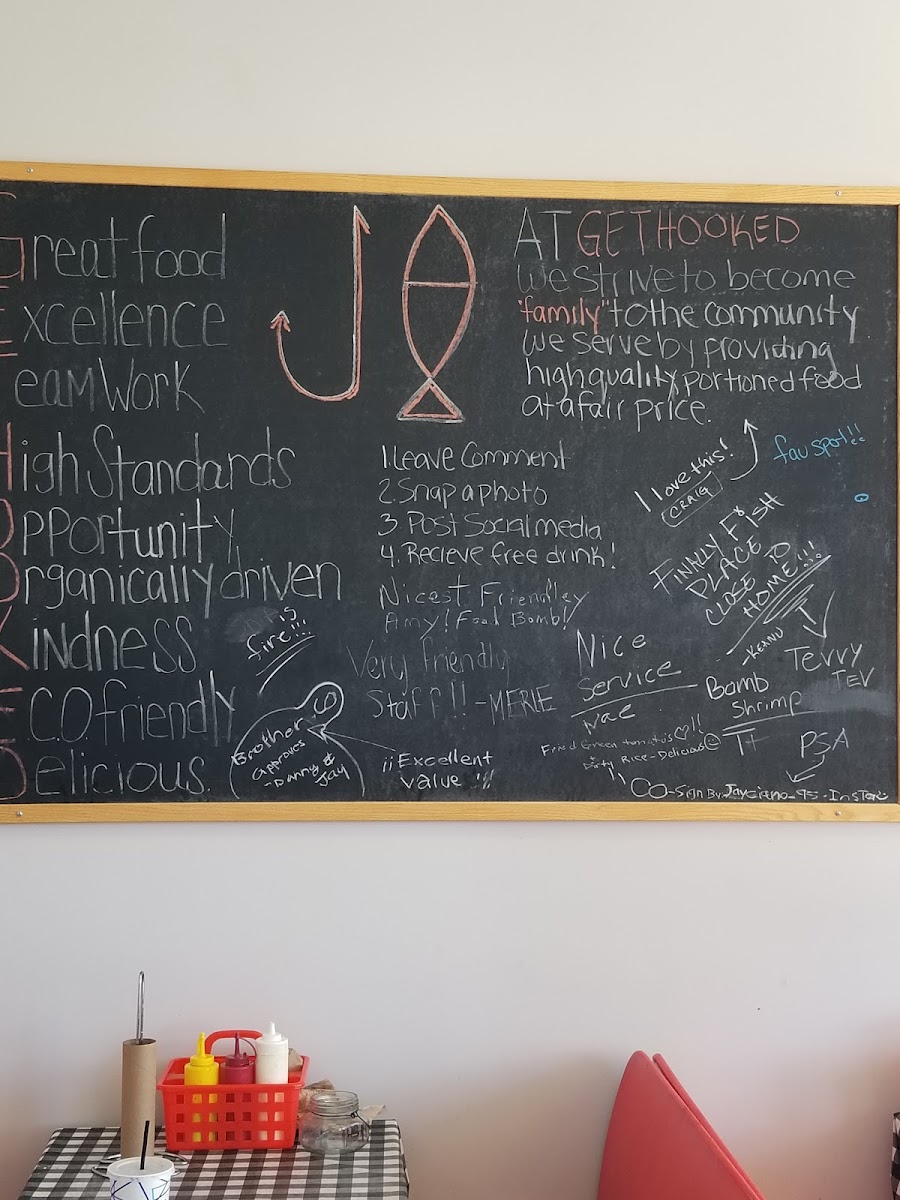 Great food
Excellence
TeamWork
High Standards
Opportunity
Organically driven
Kindness
ECO friendly
Delicious.
AT GET HOOKED
We strive to become
"family" to the community
we serve by providing
high quality portioned food
at a fair price.
1. Leave Comment
2. Snap a photo
3 Post Social media
4. Recieve free drink!
Nicest Friendley
Amy! Food Bomb!
Very friendly
Staff!! -MERLE
¡¡Excellent
value!!!
is
fire!!!
Brother
Approves
- Danny &
Jay
I love this!
CRAIG
fav spot!!
FINALLY FISH
PLACE
CLOSE TO
HOME!!!
-KEANU
Nice
Service
Fried Green tomatoes !!
Dirty Rice - Delicious
Bomb
Shrimp
Tevvy
TEV
PSA
CO-Sign By: